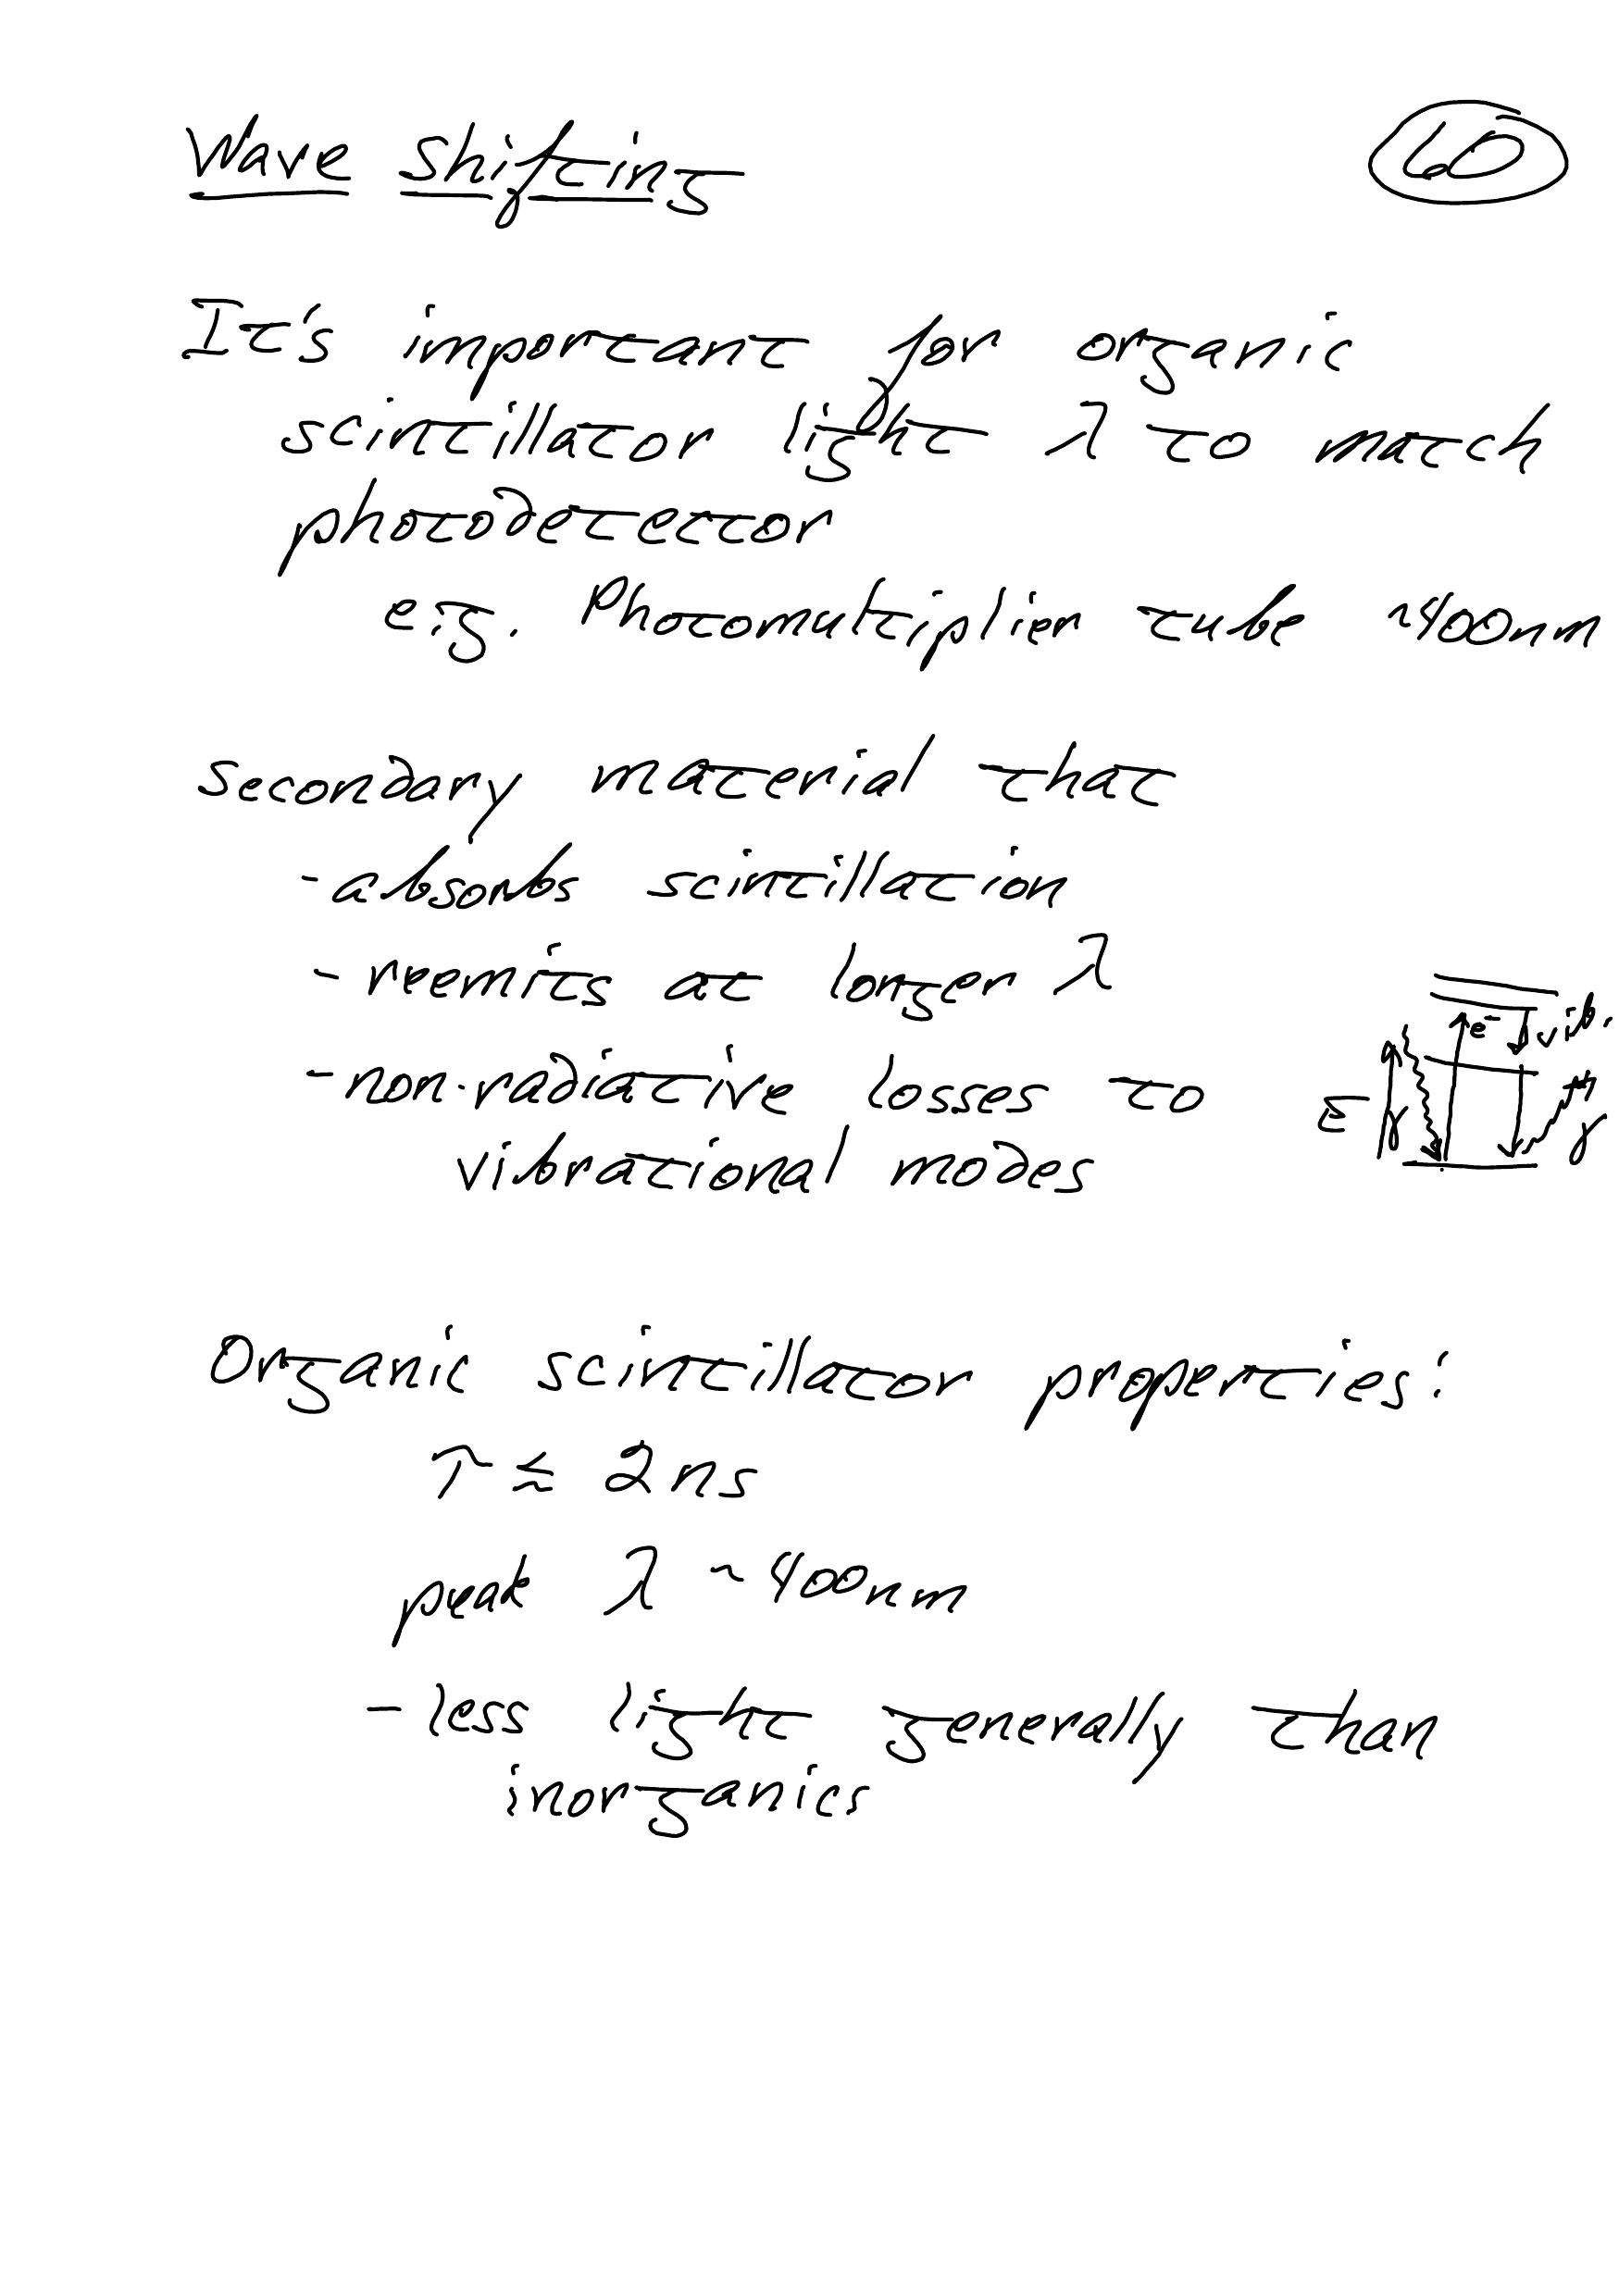 Wave Shifting
It's important for organic
scintillator light λ to match
photodetector
e.g. Photomultiplier tube ~400nm
Secondary material that
- absorbs scintillation
- reemits at longer λ
- non-radiative losses to
vibrational modes
E γ e⁻ vib. γ
Organic scintillator properties:
τ ≈ 2ns
peak λ ~400nm
- less light generally than
inorganics